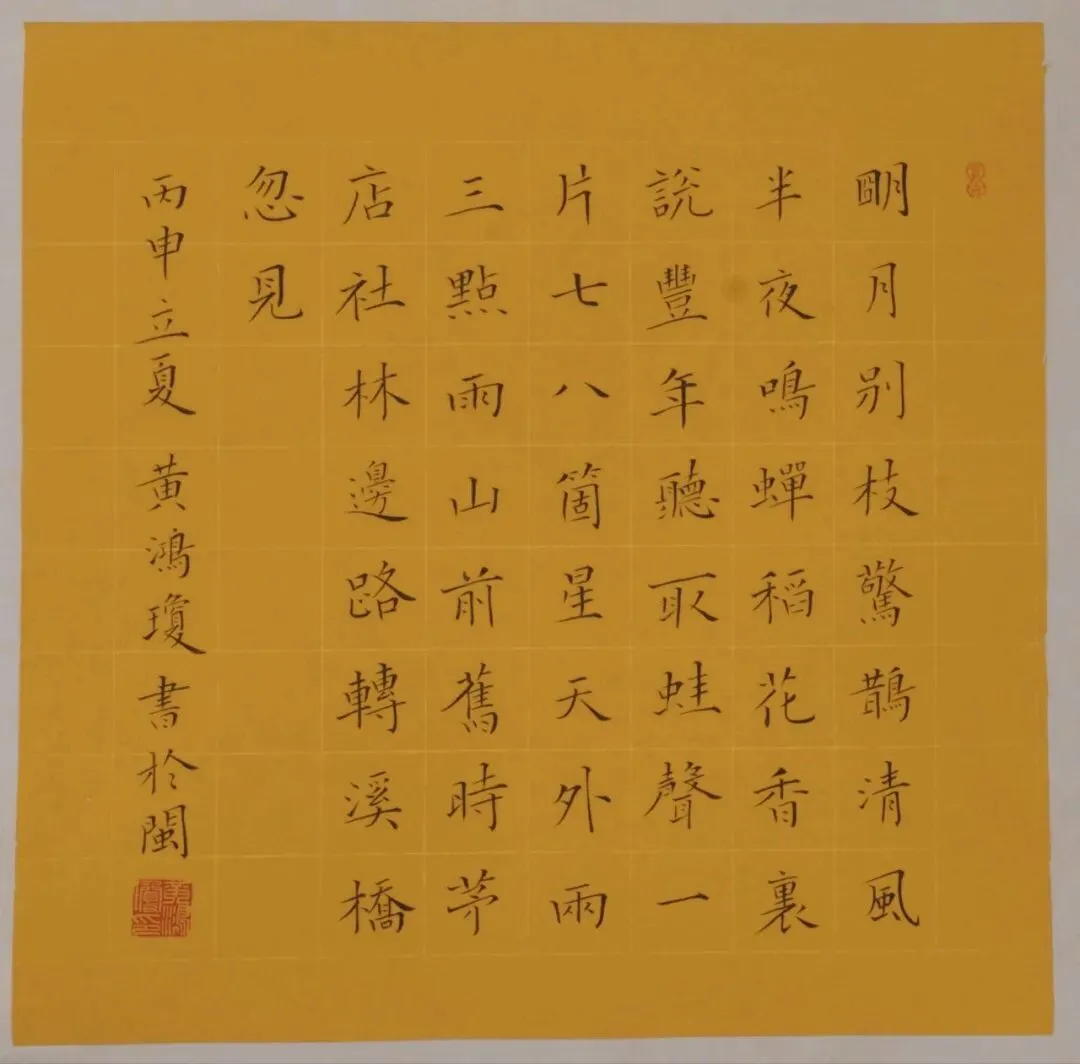 明月别枝驚鵲清風
半夜鳴蟬稻花香裏
說豐年聽取蛙聲一
片七八箇星天外兩
三點雨山前舊時茅
店社林邊路轉溪橋
忽見
丙申立夏 黄鴻瓊書於閩